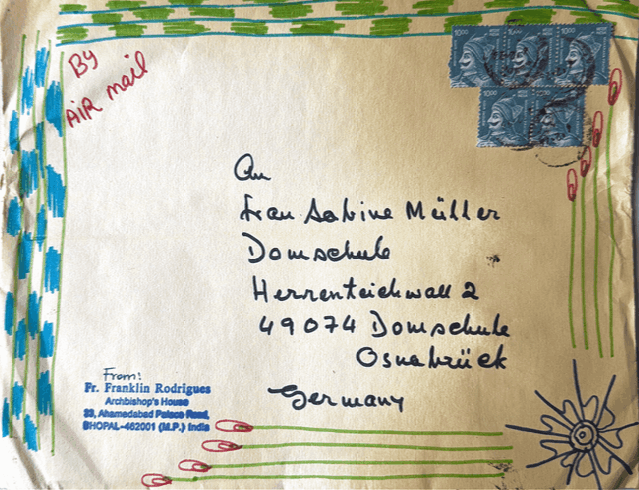 By
AIR mail
1000
1000
1000
1000
An
Frau Sabine Müller
Domschule
Herrenteichwall 2
49074 Domschule
Osnabrück
Germany
From:
Fr. Franklin Rodrigues
Archbishop's House
33, Ahamedabad Palace Road,
BHOPAL-462001 (M.P.) India